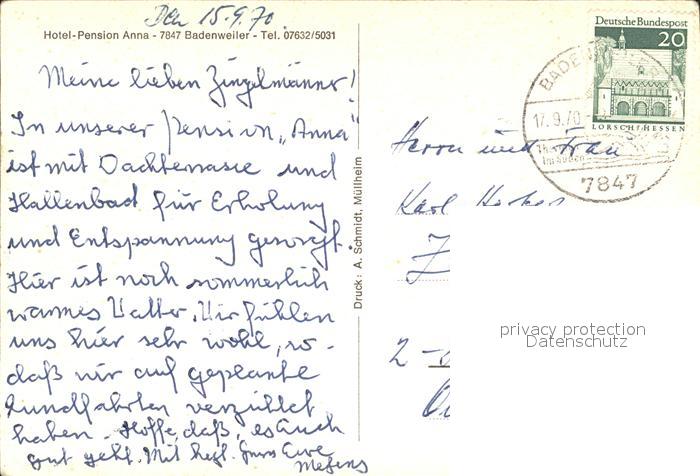 Den 15.9.70.
Hotel-Pension Anna - 7847 Badenweiler - Tel. 07632/5031
Meine lieben Zingelmänner!
In unserer Pension „Anna"
ist mit Dachterrasse und
Hallenbad für Erholung
und Entspannung gesorgt.
Hier ist noch sommerlich
warmes Wetter. Wir fühlen
uns hier sehr wohl, so-
daß wir auf geplante
Rundfahrten verzichtet
haben. Hoffe, daß es Euch
gut geht. Mit herzl. Gruss Eure
Druck: A. Schmidt, Müllheim
Deutsche Bundespost
20
LORSCH/HESSEN
17.9.70
7847
Herrn und Frau
Karl
Z
2 -
privacy protection
Datenschutz